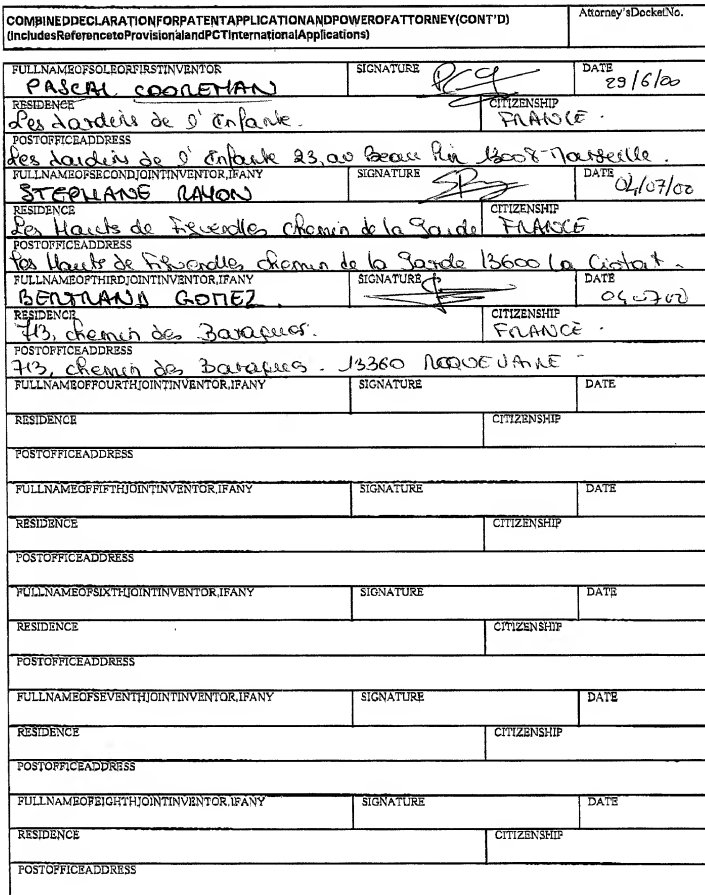 COMBINEDDECLARATIONFORPATENTAPPLICATIONANDPOWEROFATTORNEY(CONT'D)
(IncludesReferencetoProvisionalandPCTInternationalApplications)
Attorney'sDocketNo.
FULLNAMEOFSOLEORFIRSTINVENTOR SIGNATURE DATE
PASCAL COOREMAN 29/6/00
RESIDENCE CITIZENSHIP
Les Jardins de l'Enfante. FRANCE.
POSTOFFICEADDRESS
Les Jardins de l'Enfante 23, av Beau Pin 13008-Marseille.
FULLNAMEOFSECONDJOINTINVENTOR,IFANY SIGNATURE DATE
STEPHANE RAYON 04/07/00
RESIDENCE CITIZENSHIP
Les Hauts de chemin de la Garde FRANCE
POSTOFFICEADDRESS
Les Hauts de chemin de la Garde 13600 La Ciotat.
FULLNAMEOFTHIRDJOINTINVENTOR,IFANY SIGNATURE DATE
BERTRAND GOMEZ.
RESIDENCE CITIZENSHIP
713, chemin des Baraques. FRANCE.
POSTOFFICEADDRESS
713, chemin des Baraques. 13360 ROQUEVAIRE -
FULLNAMEOFFOURTHJOINTINVENTOR,IFANY SIGNATURE DATE
RESIDENCE CITIZENSHIP
POSTOFFICEADDRESS
FULLNAMEOFFIFTHJOINTINVENTOR,IFANY SIGNATURE DATE
RESIDENCE CITIZENSHIP
POSTOFFICEADDRESS
FULLNAMEOFSIXTHJOINTINVENTOR,IFANY SIGNATURE DATE
RESIDENCE CITIZENSHIP
POSTOFFICEADDRESS
FULLNAMEOFSEVENTHJOINTINVENTOR,IFANY SIGNATURE DATE
RESIDENCE CITIZENSHIP
POSTOFFICEADDRESS
FULLNAMEOFEIGHTHJOINTINVENTOR,IFANY SIGNATURE DATE
RESIDENCE CITIZENSHIP
POSTOFFICEADDRESS